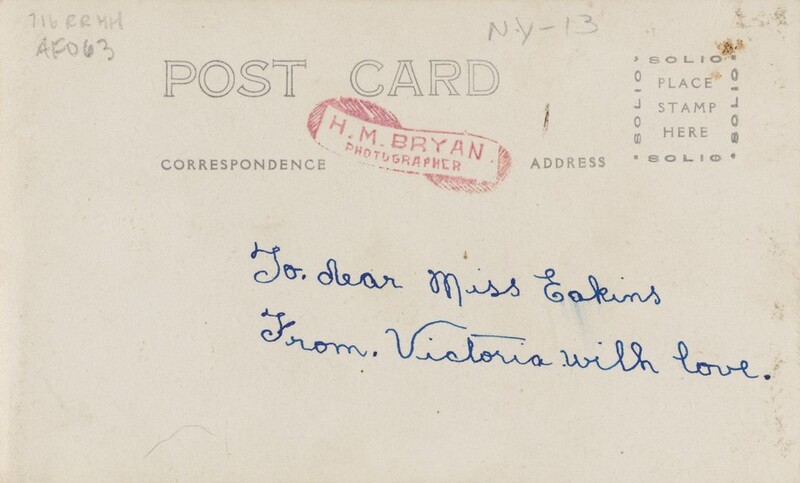 716RRHH
AF063
N.Y-13
POST CARD
SOLIO
SOLIO PLACE SOLIO
STAMP
HERE
SOLIO
H. M. BRYAN
PHOTOGRAPHER
CORRESPONDENCE ADDRESS
To. dear Miss Eakins
From. Victoria with love.